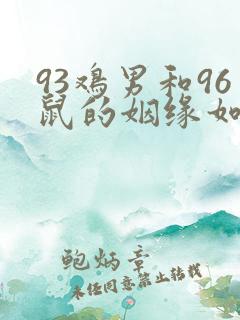 93鸡男和96
鼠的姻缘如
鲍炳章
未经同意禁止转载